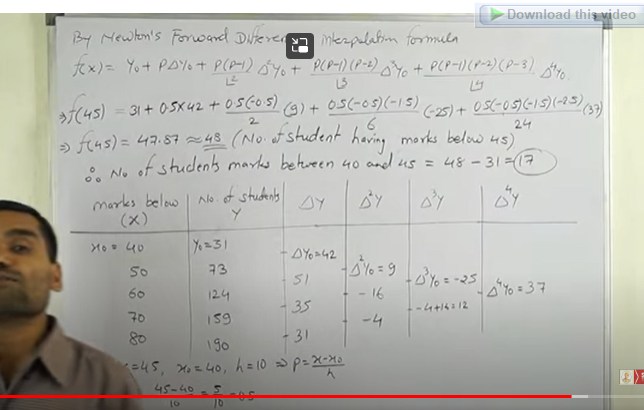 Download this video
By Newton's Forward Differen interpolation formula
f(x) = Y₀ + PΔY₀ + P(P-1)/L2 Δ²Y₀ + P(P-1)(P-2)/L3 Δ³Y₀ + P(P-1)(P-2)(P-3)/L4 Δ⁴Y₀
⇒ f(45) = 31 + 0.5×42 + 0.5(-0.5)/2 (9) + 0.5(-0.5)(-1.5)/6 (-25) + 0.5(-0.5)(-1.5)(-2.5)/24 (37)
⇒ f(45) = 47.87 ≈ 48 (No. of student having marks below 45)
∴ No of students marks between 40 and 45 = 48 - 31 = 17
marks below (X) No. of students Y ΔY Δ²Y Δ³Y Δ⁴Y
x₀ = 40 Y₀ = 31
ΔY₀ = 42
50 73 Δ²Y₀ = 9
51 Δ³Y₀ = -25
60 124 -16 Δ⁴Y₀ = 37
35 -4+16=12
70 159 -4
31
80 190
=45, x₀ = 40, h = 10 ⇒ P = x-x₀/h
45-40/10 = 5/10 = 0.5